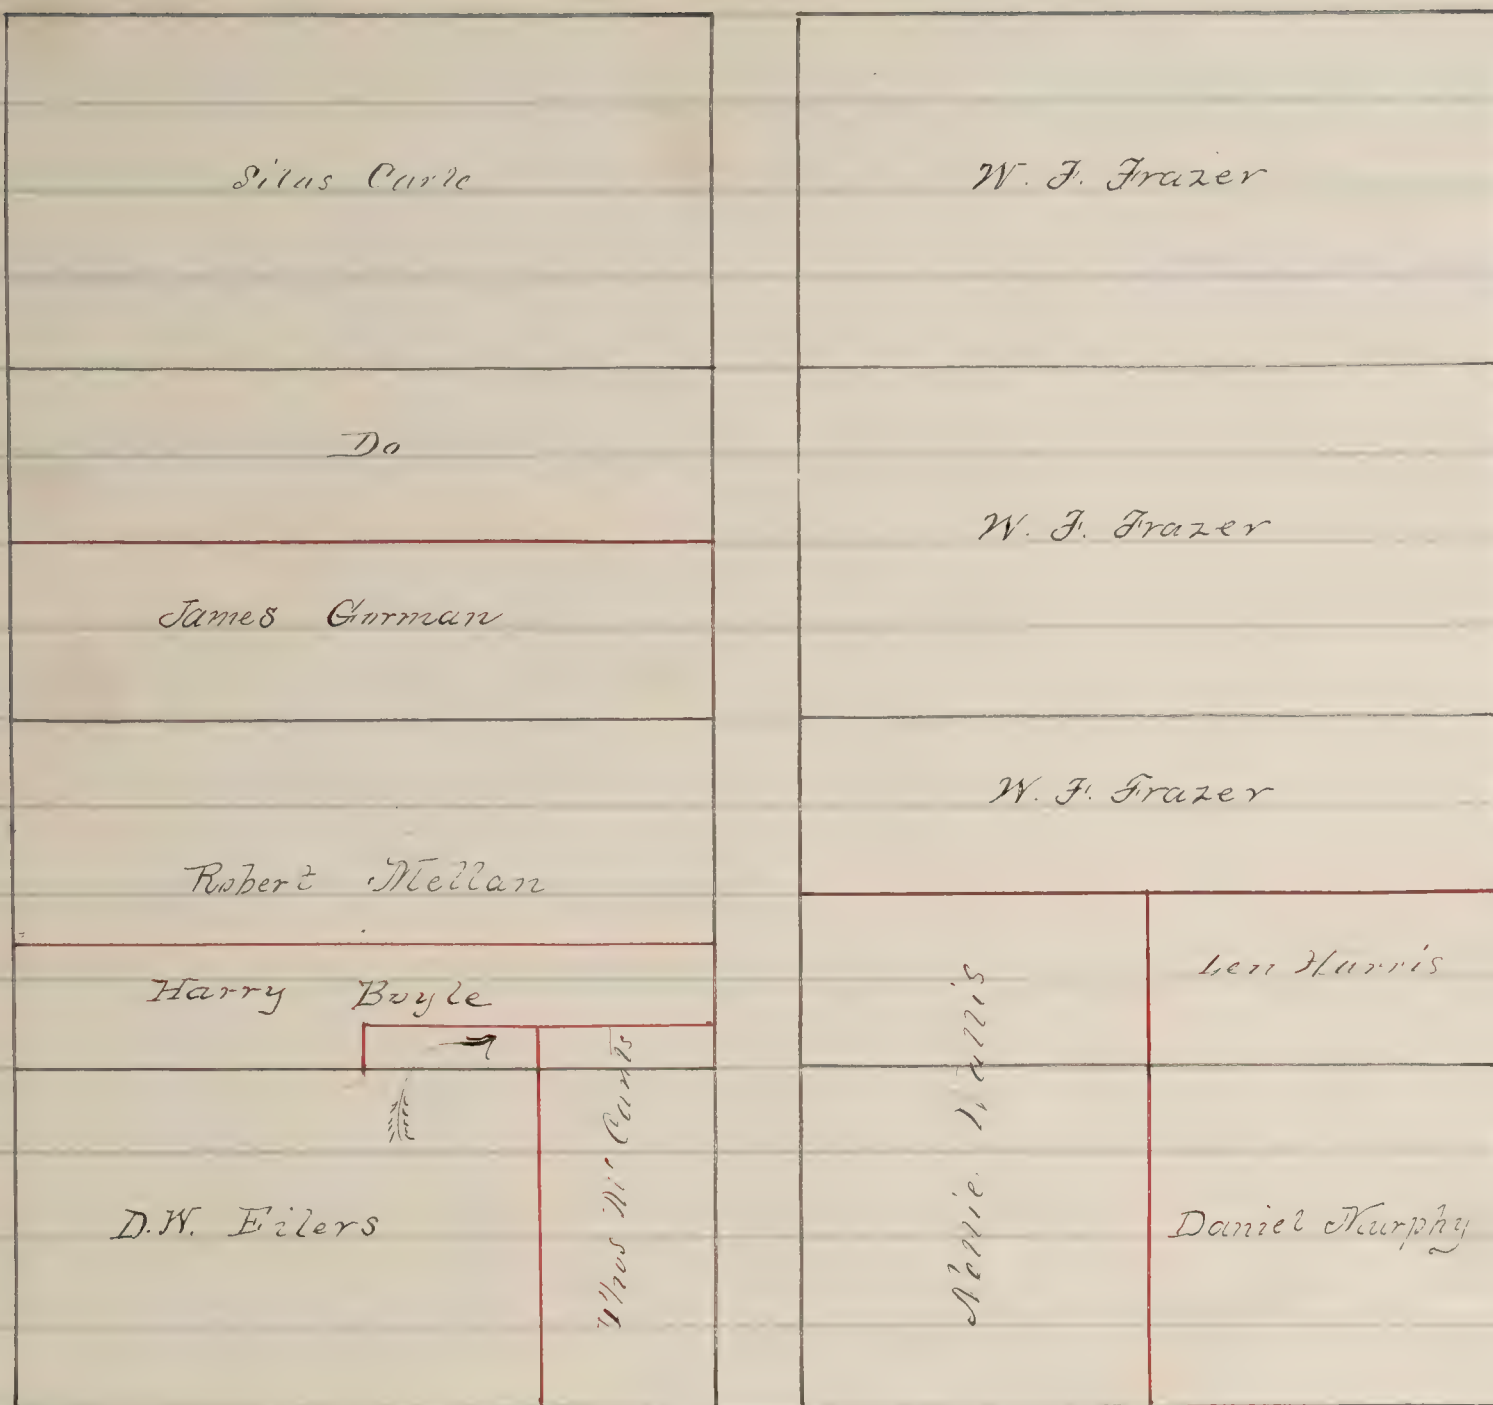 Silas Carle
Do
James Gorman
Robert Mellan
Harry Boyle
D.W. Eilers
Thos Mc
W. F. Frazer
W. F. Frazer
W. F. Frazer
Len Harris
Nenie
Daniel Murphy